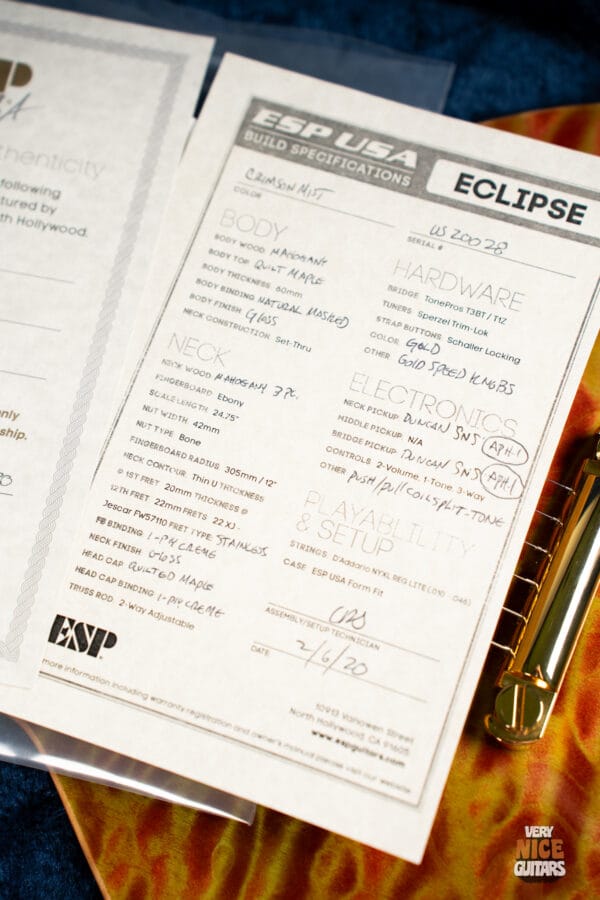 uthenticity
following
tured by
th Hollywood.
only
ship.
ESP USA
BUILD SPECIFICATIONS
ECLIPSE
CRIMSON MIST
COLOR
US 20028
SERIAL #
BODY
BODY WOOD MAHOGANY
BODY TOP QUILT MAPLE
BODY THICKNESS 60mm
BODY BINDING NATURAL MASKED
BODY FINISH GLOSS
NECK CONSTRUCTION Set-Thru
NECK
NECK WOOD MAHOGANY 3 PC.
FINGERBOARD Ebony
SCALE LENGTH 24.75"
NUT WIDTH 42mm
NUT TYPE Bone
FINGERBOARD RADIUS 305mm / 12"
NECK CONTOUR Thin U THICKNESS
@ 1ST FRET 20mm THICKNESS @
12TH FRET 22mm FRETS 22 XJ -
Jescar FW57110 FRET TYPE STAINLESS
FB BINDING 1-PLY CREME
NECK FINISH GLOSS
HEAD CAP QUILTED MAPLE
HEAD CAP BINDING 1-PLY CREME
TRUSS ROD 2-Way Adjustable
HARDWARE
BRIDGE TonePros T3BT / T1Z
TUNERS Sperzel Trim-Lok
STRAP BUTTONS Schaller Locking
COLOR GOLD
OTHER GOLD SPEED KNOBS
ELECTRONICS
NECK PICKUP DUNCAN SNS APH-1
MIDDLE PICKUP N/A
BRIDGE PICKUP DUNCAN SNS APH-1
CONTROLS 2-Volume, 1-Tone, 3-Way
OTHER PUSH/PULL COIL SPLIT-TONE
PLAYABLILITY
& SETUP
STRINGS D'Addario NYXL REG LITE (.010 - .046)
CASE ESP USA Form Fit
ASSEMBLY/SETUP TECHNICIAN
DATE 2/6/20
ESP
more information including warranty registration and owner's manual please visit our website
10913 Vanowen Street
North Hollywood, CA 91605
www.espguitars.com
VERY
NICE
GUITARS